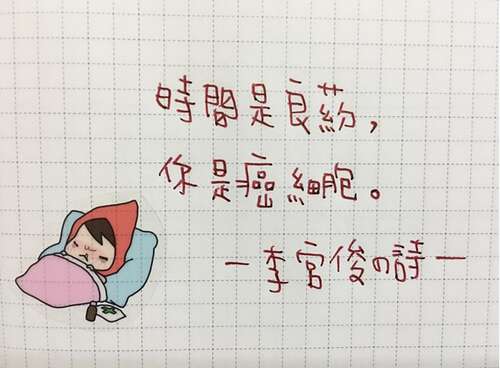 時間是良葯,
你是癌細胞。
—李宮俊の詩—